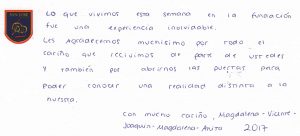 Lo que vivimos esta semana en la fundación
fue una experiencia inolvidable.
Les agradecemos muchísimo por todo el
cariño que recivimos de parte de ustedes
y también por abrirnos las puertas para
poder conocer una realidad distinta a la
nuestra.
Con mucho cariño, Magdalena - Vicente -
Joaquin - Magdalena - Anita 2017